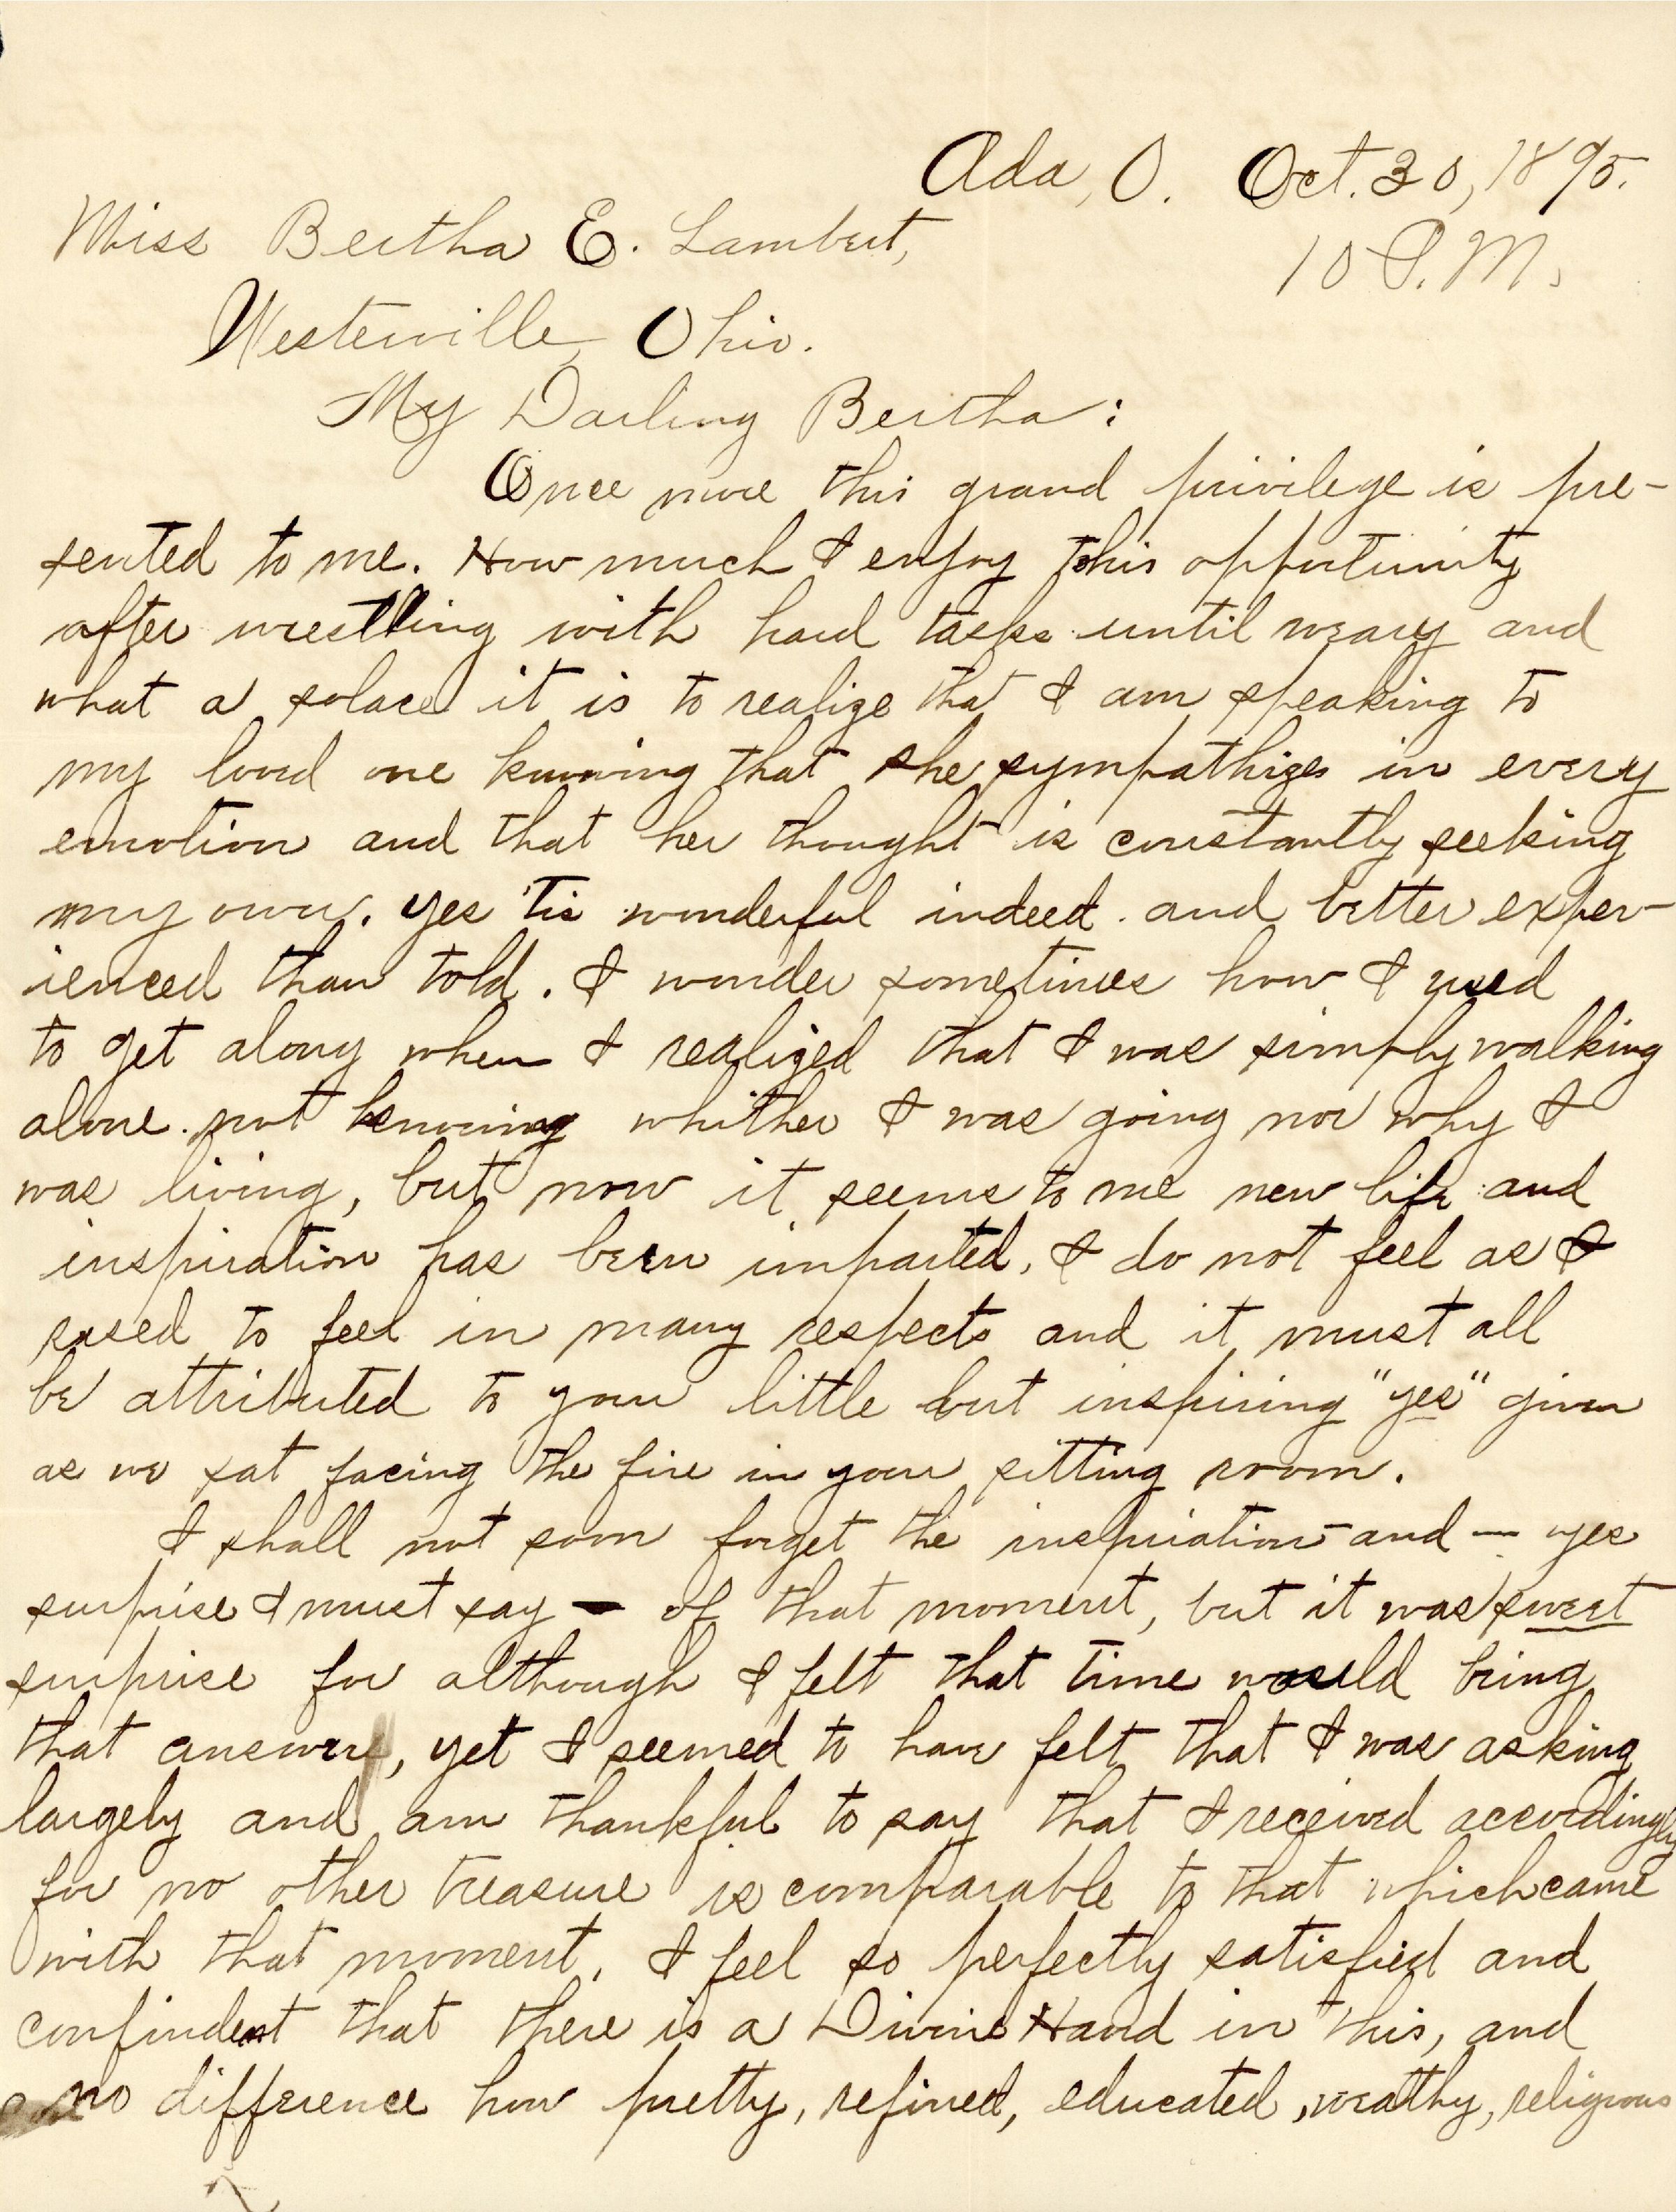 Ada, O. Oct. 30, 1895.
Miss Bertha E. Lambert,
10 P.M.
Westerville, Ohio.
My Darling Bertha:
Once more this grand privilege is pre-
sented to me. How much I enjoy this opportunity
after wrestling with hard tasks until weary and
what a solace it is to realize that I am speaking to
my loved one knowing that she sympathizes in every
emotion and that her thought is constantly seeking
my own. Yes 'tis wonderful indeed and better exper-
ienced than told. I wonder sometimes how I used
to get along when I realized that I was simply walking
alone not knowing whither I was going nor why I
was living, but now it seems to me new life and
inspiration has been imparted. I do not feel as I
used to feel in many respects and it must all
be attributed to your little but inspiring "yes" given
as we sat facing the fire in your sitting room.
I shall not soon forget the inspiration and — yes
surprise I must say — of that moment, but it was sweet
surprise for although I felt that time would bring
that answer, yet I seemed to have felt that I was asking
largely and am thankful to say that I received accordingly
for no other treasure is comparable to that which came
with that moment. I feel so perfectly satisfied and
confindent that there is a Divine Hand in this, and
no difference how pretty, refined, educated, weathy, religious